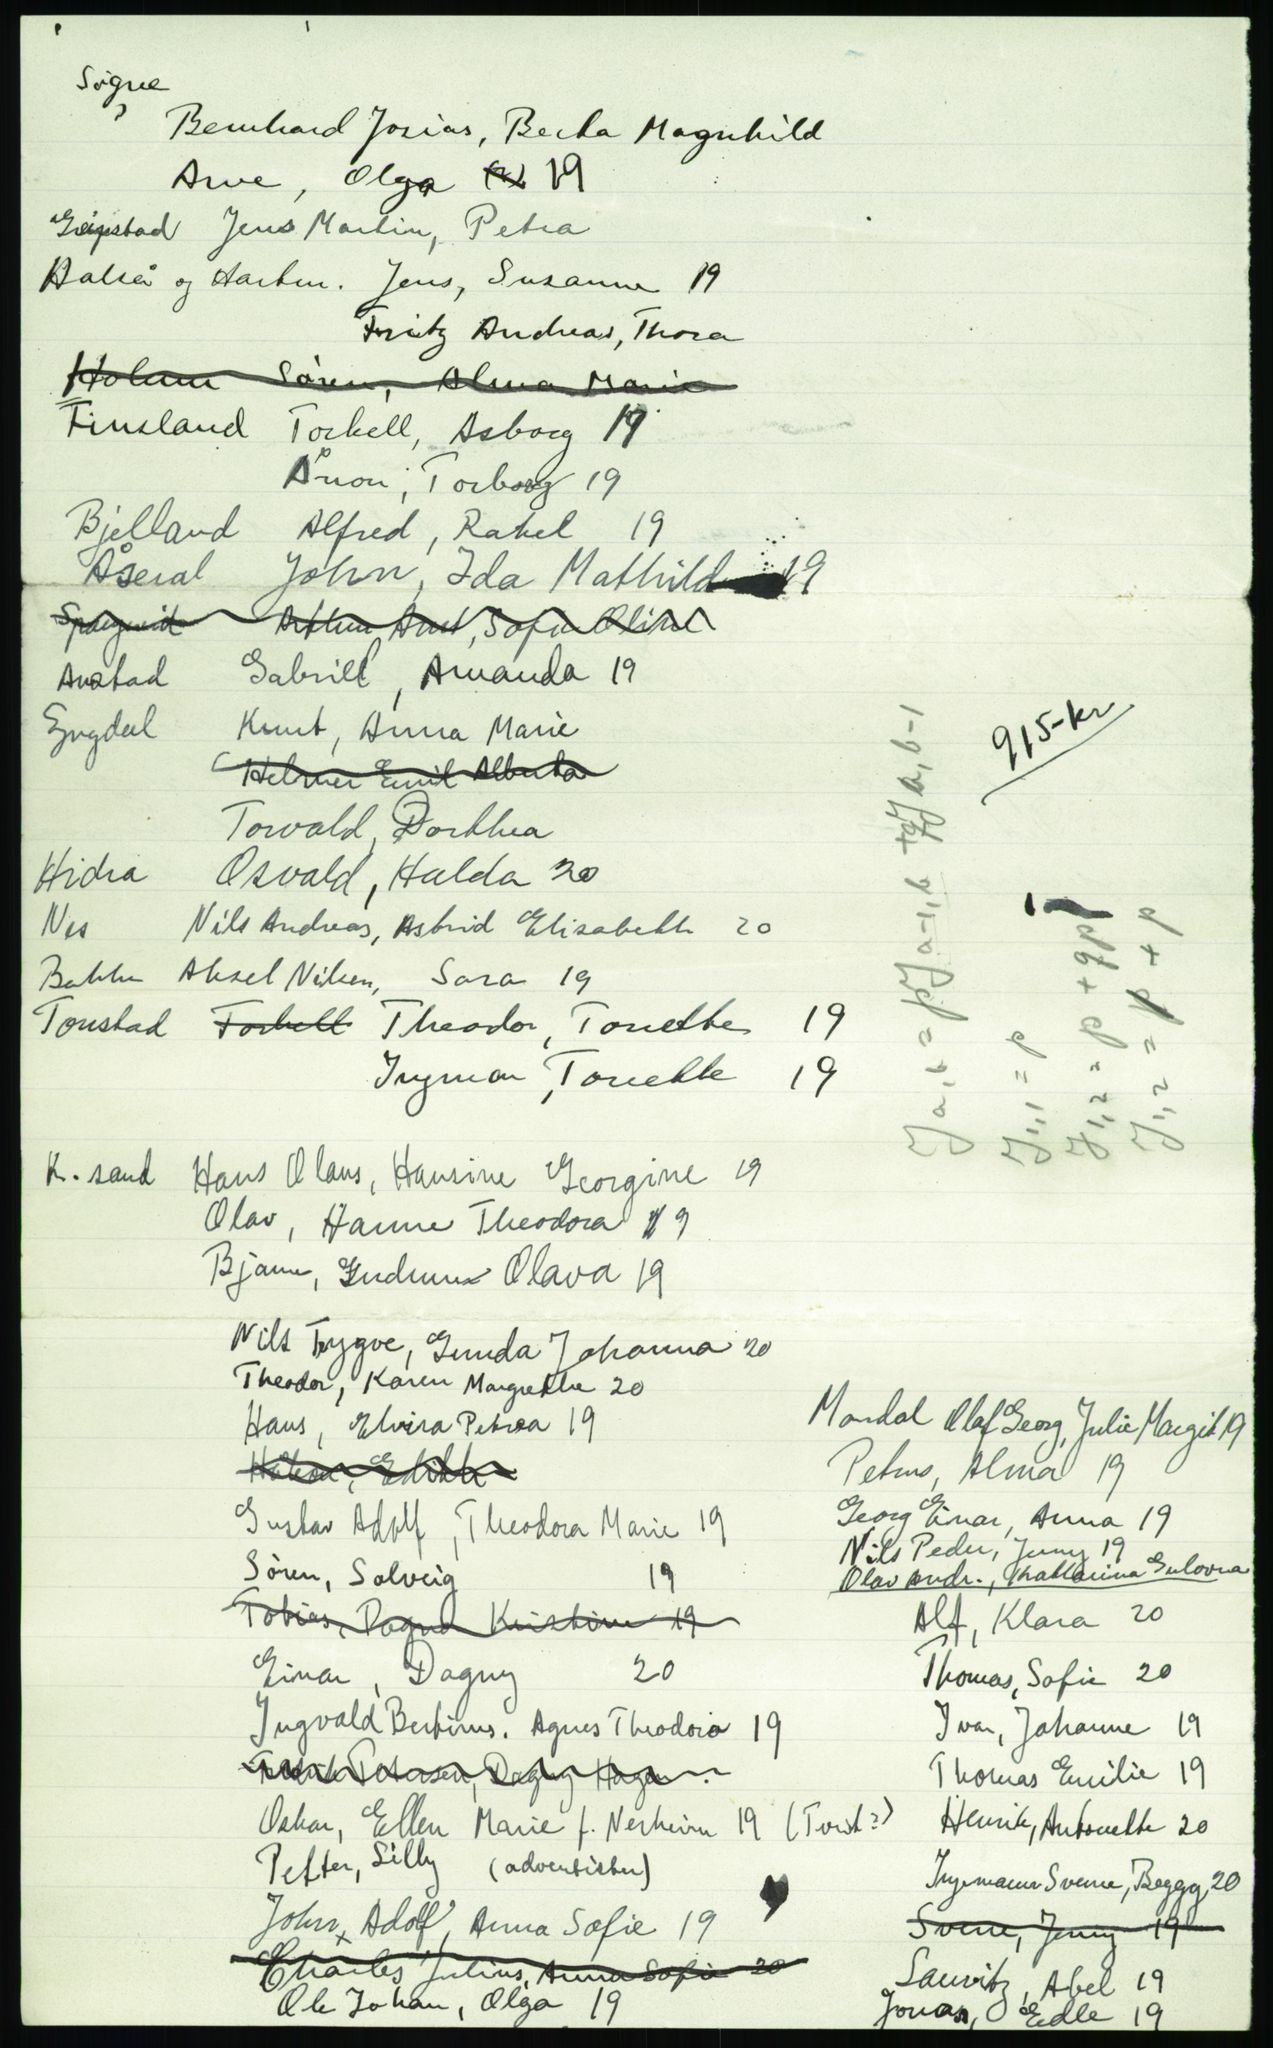 Søgne
Bernhard Josias, Berta Magnhild
Arve, Olga 19
Greipstad Jens Martin, Petra
Halså og Hartm. Jens, Susanne 19
Fritz Andreas, Thora
Holum Sören, Alma Marie
Finsland Torkell, Asborg 19
Ånon, Torborg 19
Bjelland Alfred, Rakel 19
Åseral John, Ida Mathild 19
Spangereid Arthur Ant, Sofie Oline
Austad Gabriell, Amanda 19
Lyngdal Knut, Anna Marie
Helmer Emil Alberta
Torvald, Dorthea
Hidra Osvald, Hulda 20
Nes Nils Andreas, Astrid Elisabeth 20
Bakke Aksel Nilsen, Sara 19
Tonstad Torkell Theodor, Tonette 19
Ingman, Tonette 19
K. sand Hans Olaus, Hansine Georgine 19
Olav, Hanne Theodora 19
Bjarne, Gudrun Olava 19
Nils Trygve, Gunda Johanna 20
Theodor, Karen Margrethe 20
Hans, Elvira Petrea 19
Håkon, Edith
Gustav Adolf, Theodora Marie 19
Sören, Solveig 19
Tobias, Dagny Kristine 19
Einar, Dagny 20
Ingvald Bertinus. Agnes Theodora 19
Petersen, Dagny Haga
Oskar, Ellen Marie f. Nesheim 19 (Tvist?)
Petter, Silly (adventister)
John x Adolf, Anna Sofie 19
Charles Julius, Anna Sofie 20
Ole Johan, Olga 19
Mandal Olaf Georg, Julie Margit 19
Petrus, Alma 19
Georg Einar, Anna 19
Nils Peder, Jenny 19
Olav Andr., Katharina Gulovna
Alf, Klara 20
Thomas, Sofie 20
Ivar, Johanne 19
Thomas Emilie 19
Henrik, Antonette 20
Ingemann Sverre, Beggy 20
Sverre, Jenny 19
Lauritz, Abel 19
Jonas, Edle 19
915-kr
J a,b = pJ a-1,b + qJ a,b-1
J 1,1 = p
J 1,2 = p + qp
J 1,2 = p + p